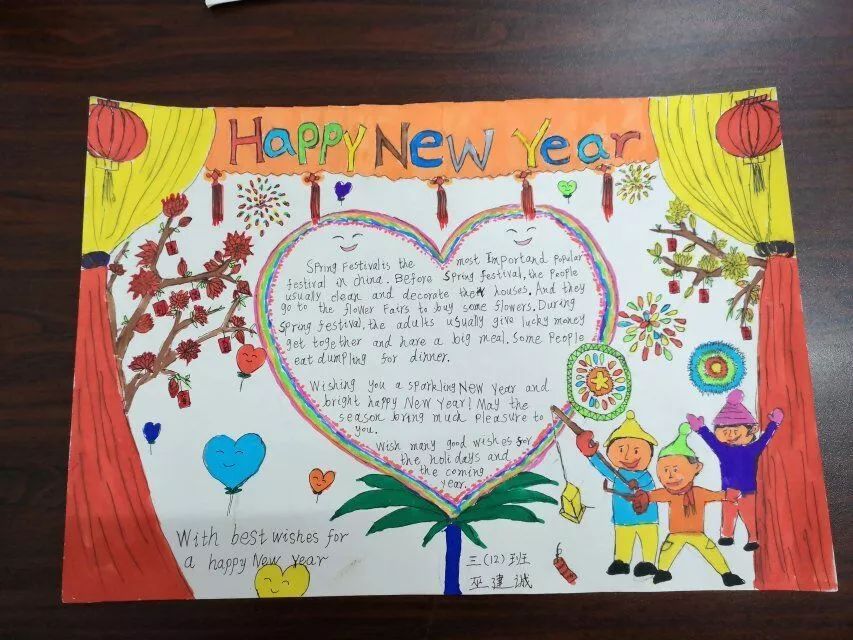 Happy New Year
Spring Festivalis the most Importand popular
festival in china. Before Spring festival, the People
usually clean and decorate their houses. And they
go to the flower Fairs to buy some flowers. During
Spring festival, the adults usually give lucky money
get together and have a big meal. Some People
eat dumpling for dinner.
Wishing you a sparkling New Year and
bright happy New Year! May the
season bring much pleasure to
you.
Wish many good wishes for
the holidays and
the coming
year.
With best wishes for
a happy New Year
三(12)班
巫建诚